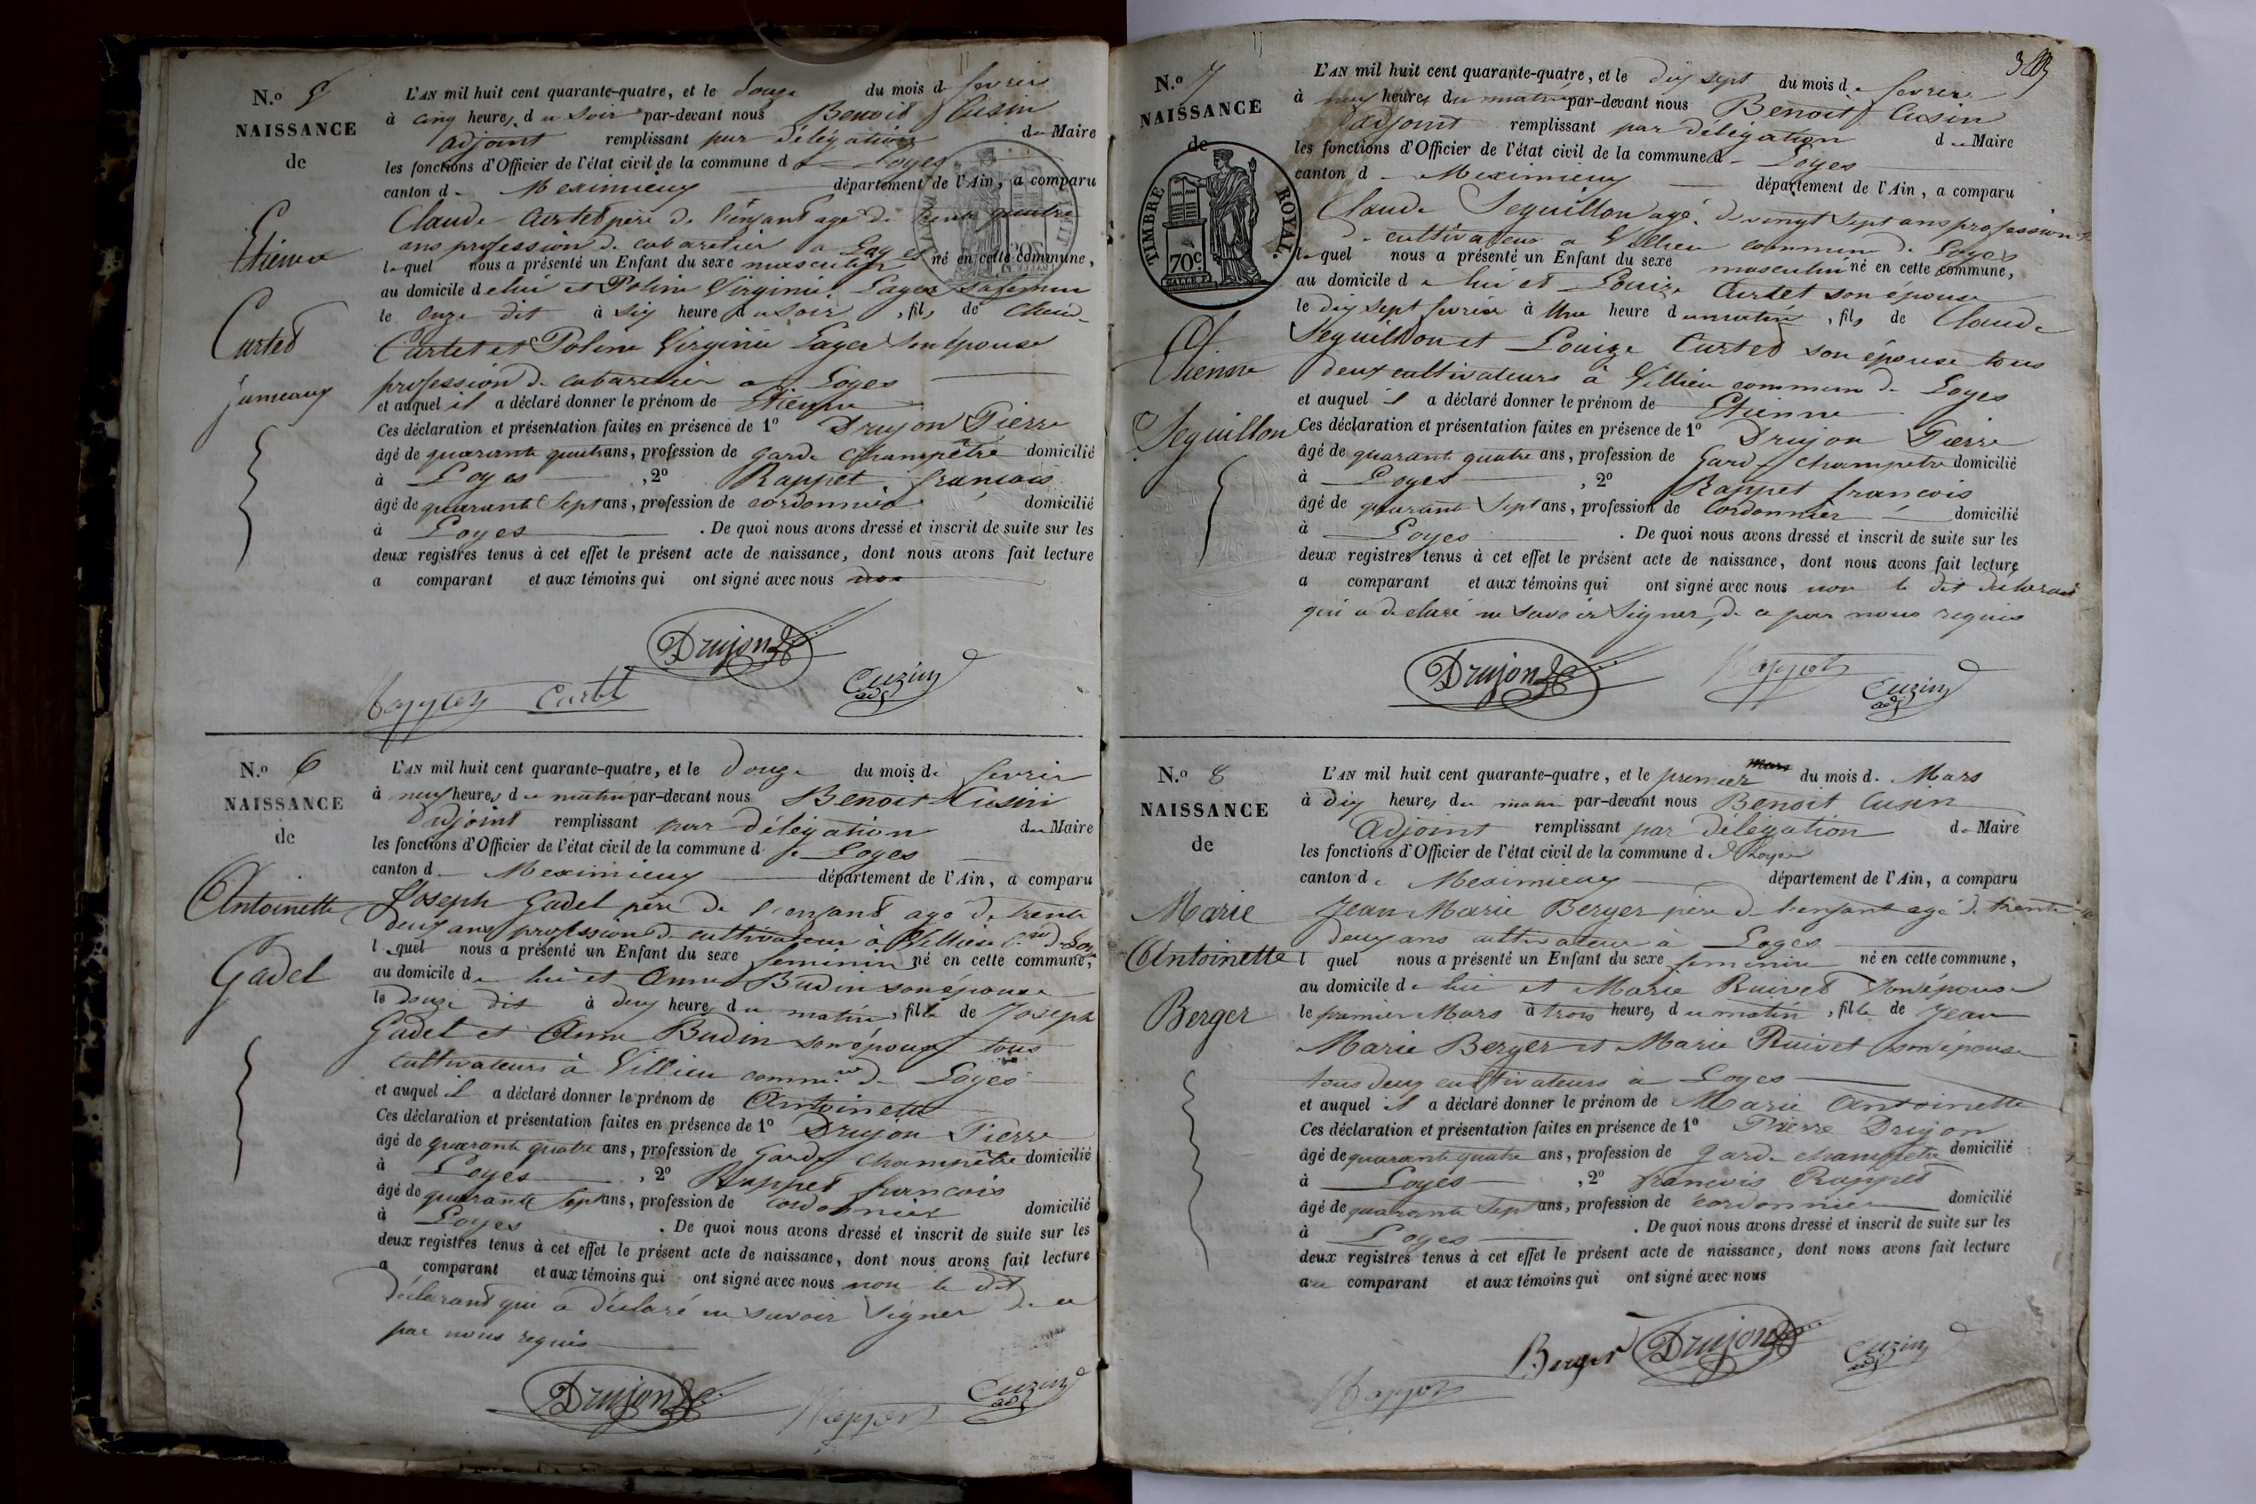 N.º 5
NAISSANCE
de
Etienne
Curtet
jumeaux
L'AN mil huit cent quarante-quatre, et le douze du mois de fevrier
à cinq heures du soir par-devant nous Benoit Cusin
adjoint remplissant par délégation du Maire
les fonctions d'Officier de l'état civil de la commune de Loyes
canton de Meximieux département de l'Ain, a comparu
Claude Curtet père de l'enfant agé de trente quatre
ans profession de cabaretier a Loyes
lequel nous a présenté un Enfant du sexe masculin né en cette commune,
au domicile de lui et Poline Virginie sa femme
le onze dit à six heure du soir, fils de Claude
Curtet et Poline Virginie son épouse
profession de cabaretier a Loyes
et auquel il a déclaré donner le prénom de Etienne
Ces déclaration et présentation faites en présence de 1º Drujon Pierre
âgé de quarante quatre ans, profession de garde champêtre domicilié
à Loyes, 2º Rappet françois
âgé de quarante sept ans, profession de cordonnier domicilié
à Loyes. De quoi nous avons dressé et inscrit de suite sur les
deux registres tenus à cet effet le présent acte de naissance, dont nous avons fait lecture
a comparant et aux témoins qui ont signé avec nous
Drujon
Rappet Curtet Cuzin adj
N.º 6
NAISSANCE
de
Antoinette
Gadel
L'AN mil huit cent quarante-quatre, et le douze du mois de fevrier
à neuf heures du matin par-devant nous Benoit Cusin
adjoint remplissant par délégation du Maire
les fonctions d'Officier de l'état civil de la commune de Loyes
canton de Meximieux département de l'Ain, a comparu
Joseph Gadel père de l'enfant agé de trente
deux ans profession de cultivateur à Villieu Cne de Loyes
lequel nous a présenté un Enfant du sexe feminin né en cette commune,
au domicile de lui et Anne Budin son épouse
le douze dit à deux heures du matin, fille de Joseph
Gadel et Anne Budin son épouse tous
cultivateurs à Villieu comm.ne de Loyes
et auquel il a déclaré donner le prénom de Antoinette
Ces déclaration et présentation faites en présence de 1º Drujon Pierre
âgé de quarante quatre ans, profession de garde champêtre domicilié
à Loyes, 2º Rappet francois
âgé de quarante sept ans, profession de cordonnier domicilié
à Loyes. De quoi nous avons dressé et inscrit de suite sur les
deux registres tenus à cet effet le présent acte de naissance, dont nous avons fait lecture
a comparant et aux témoins qui ont signé avec nous non le dit
déclarant qui a déclaré ne savoir signer de ce
par nous requis
Drujon Rappet Cuzin adj
383
N.º 7
NAISSANCE
de
TIMBRE ROYAL.
70c.
Etienne
Seguillon
L'AN mil huit cent quarante-quatre, et le dix sept du mois de fevrier
à neuf heures du matin par-devant nous Benoit Cusin
adjoint remplissant par délégation du Maire
les fonctions d'Officier de l'état civil de la commune de Loyes
canton de Meximieux département de l'Ain, a comparu
Claude Seguillon agé de vingt sept ans profession
de cultivateur a Villieu commune de Loyes
lequel nous a présenté un Enfant du sexe masculin né en cette commune,
au domicile de lui et Louize Curtet son épouse
le dix sept fevrier à Une heure du matin, fils de Claude
Seguillon et Louize Curtet son épouse tous
deux cultivateurs à Villieu commune de Loyes
et auquel il a déclaré donner le prénom de Etienne
Ces déclaration et présentation faites en présence de 1º Drujon Pierre
âgé de quarante quatre ans, profession de garde champetre domicilié
à Loyes, 2º Rappet francois
âgé de quarante sept ans, profession de cordonnier domicilié
à Loyes. De quoi nous avons dressé et inscrit de suite sur les
deux registres tenus à cet effet le présent acte de naissance, dont nous avons fait lecture
a comparant et aux témoins qui ont signé avec nous non le dit déclarant
qui a declaré ne savoir signer, de ce par nous requis
Drujon Rappet Cuzin adj
N.º 8
NAISSANCE
de
Marie
Antoinette
Berger
L'AN mil huit cent quarante-quatre, et le premier mars du mois de Mars
à dix heures du matin par-devant nous Benoit Cusin
adjoint remplissant par délégation du Maire
les fonctions d'Officier de l'état civil de la commune de Loyes
canton de Meximieux département de l'Ain, a comparu
Jean Marie Berger père de l'enfant agé de trente
deux ans cultivateur à Loyes
l quel nous a présenté un Enfant du sexe feminin né en cette commune,
au domicile de lui et Marie Ruivet son épouse
le premier Mars à trois heures du matin, fille de Jean
Marie Berger et Marie Ruivet son épouse
tous deux cultivateurs à Loyes
et auquel il a déclaré donner le prénom de Marie Antoinette
Ces déclaration et présentation faites en présence de 1º Pierre Drujon
âgé de quarante quatre ans, profession de garde champetre domicilié
à Loyes, 2º francois Rappet
âgé de quarante sept ans, profession de cordonnier domicilié
à Loyes. De quoi nous avons dressé et inscrit de suite sur les
deux registres tenus à cet effet le présent acte de naissance, dont nous avons fait lecture
au comparant et aux témoins qui ont signé avec nous
Berger Drujon Cuzin adj
Rappet